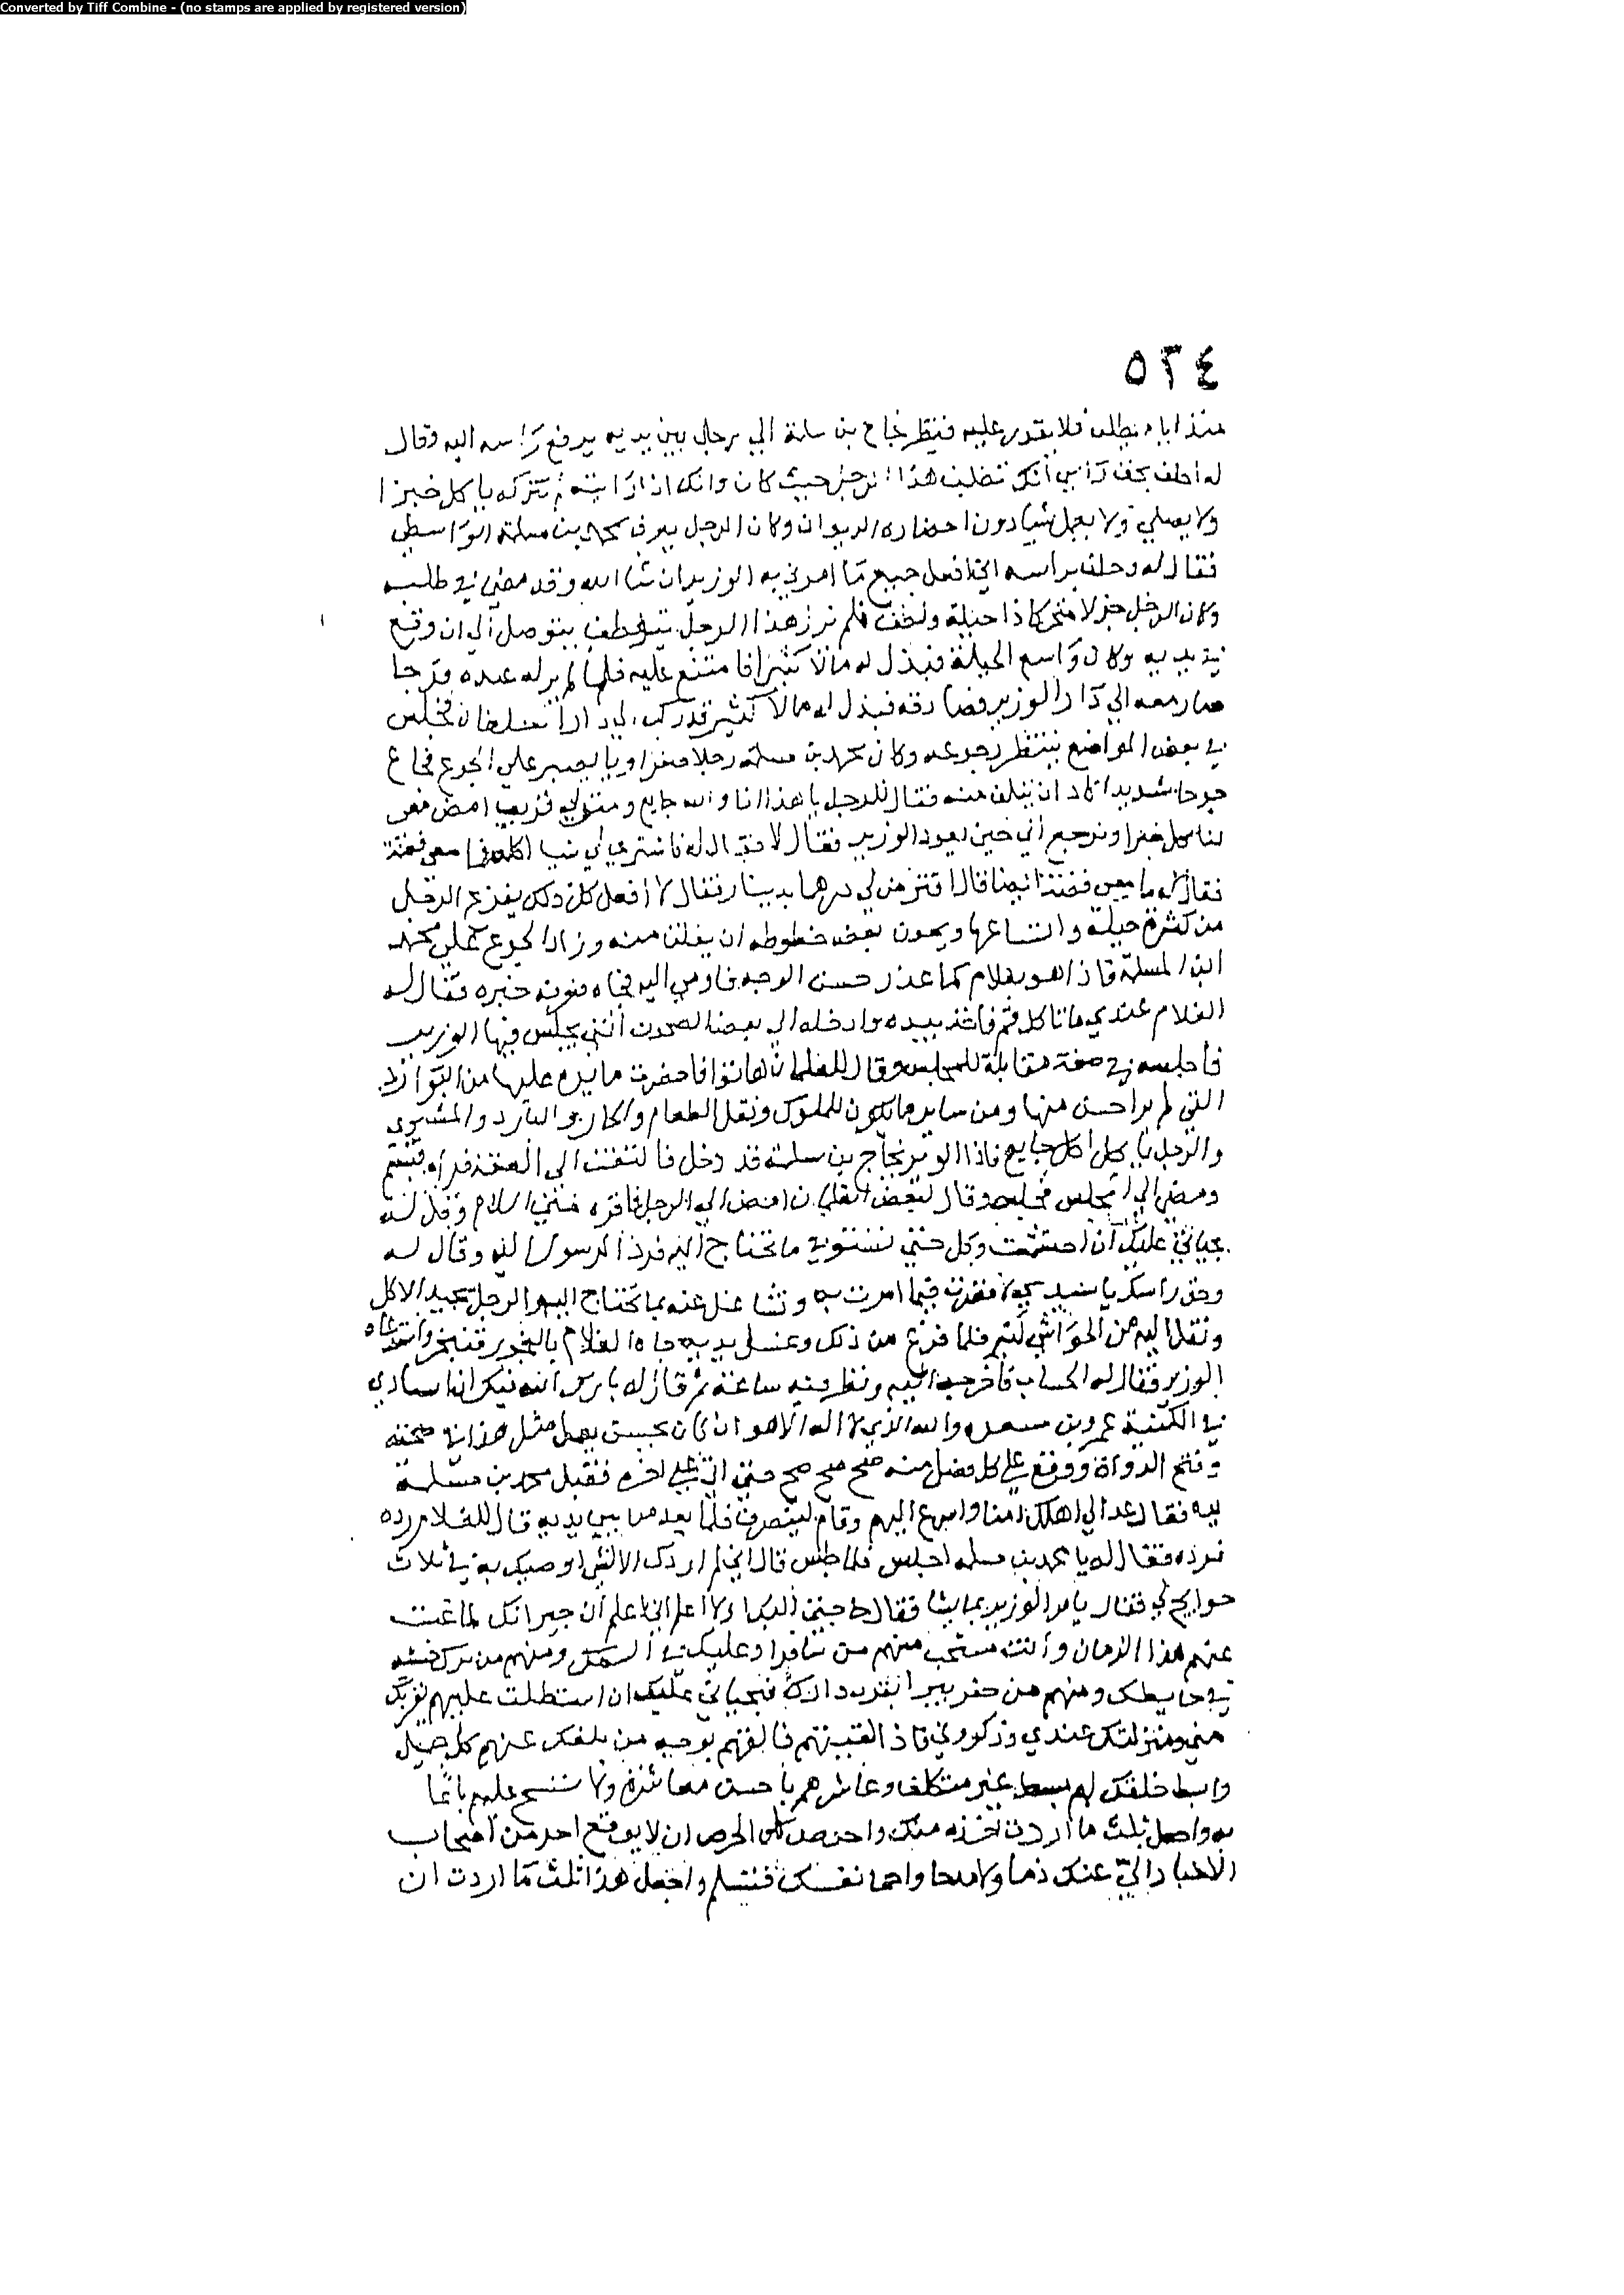 Converted by Tiff Combine - (no stamps are applied by registered version)
٥٣٤
منذ ايام يطلب فلا يقدر عليه فينظر نجاح بن سلمة الي رجل بين يديه يرفع رأسه اليه وقال
له احلف بحق رأسي أنك تطلب هذا الرجل حيث كان وانك اذا رايته لم تتركه ياكل خبزا
ولا يصلي ولا يعمل شيا دون احضاره الديوان وكان الرجل يعرف بمحمد بن مسلمة الواسطي
فقال له وحلف براسه اني افعل جميع ما امرني به الوزير ان شا الله وقد مضي في طلبه
وكان الرجل جزلا ذا حيلة ولطف فلم يزل هذا الرجل يتلطف يتوصل الي ان وقع
في يديه وكان واسع الحيلة فبذل له مالا كثيرا فامتنع عليه فلما لم ير له عنده فرجا
صار معه الي دار الوزير فبذل له مالا كثير قد ركب الي دار السلطان فجلس
في بعض المواضع ينتظر رجوعه وكان محمد بن مسلمة رجلا يصبر علي الجوع فجاع
جوعا شديدا كاد ان يتلف منه فقال للرجل يا هذا انا والله جايع ومنزلي قريب امض معي
لناكل خبزا ونرجع الي حين يعود الوزير فقال لا فقال له فاشتري لي شيا اكله معي فضة
فقال له ما معي فضة ايضا قال اقترض لي درهما بدينار فقال لا افعل كل ذلك يفزع الرجل
من كثرة حيلة واتساعها ويكون بعض خطوطه ان يفلت منه وزاد الجوع علي محمد
ابن المسلمة فاذا هو بغلام كما عذر حسن الوجه فاومي اليه فجاه فعرفه خبره فقال له
الغلام عندي ما تاكل قم فاخذ بيده وادخله الي بعض الصحون التي يجلس فيها الوزير
فاجلسه في صفة مقابلة للمجلس وقال للغلمان هاتوا فاحضرت ما يدم عليها من البوارد
التي لم ير احسن منها ومن ساير ما يكون للملوك ونقل الطعام والحار والبارد والمشوي
والرجل ياكل اكل جايع فاذا الوزير نجاح بن سلمة قد دخل فالتفت الي الصفة فراه فتبسم
ومضي الي المجلس فجلس وقال لبعض الغلمان امض الي الرجل فاقره مني السلام وقل له
بحياتي عليك ان احتشمت وكل حتي تستوفي ما تحتاج اليه فرد الرسول اليه وقال له
وحق راسك يا سيدي لا قصرت فيما امرت به وتشاغل عنه بما يحتاج اليه والرجل يجيد الاكل
ونقل اليه من الحواشي كثير فلما فرغ من ذلك وغسل يديه جاه الغلام بالبخور فتبخر واستدعاه
الوزير فقال له الحساب فاخرجه اليه ونظر فيه ساعة ثم قال له استاذي
في الكتبة عمرو بن مسعدة والله الذي لا اله الا هو ان كان يحسن يعمل مثل هذا
وفتح الدواة ووقع علي كل فصل منه صح صح صح حتي اتي علي اخره فقبل محمد بن مسلمة
يده فقال عد الي اهلك امنا واسرع اليهم وقام لينصرف فلما بعد من بين يديه قال للغلام رده
فرده فقال له يا محمد بن مسلمة اجلس فلما جلس قال اني لم اردك الا لشي اوصيك به في ثلاث
حوايج لي فقال يامر الوزير بما يشا فقال حاجتي اليك اولا اعلم اني اعلم أن جيرانك لما غبت
عنهم هذا الزمان وأنت مستحب منهم من تنافرا وعليك في السكك ومنهم من ترك خشبه
في حايطك ومنهم من حفر بيرا بقرب دارك فبحياتي عليك ان استطلت عليهم بقربك
مني ومنزلتك عندي وذكروني فاذا لقيتهم فالقهم بوجه من بلغك عنهم كل جميل
وابسط خلقك لهم بسط غير متكلف وعاشرهم باحسن معاشرة
به واجعل ثلث ما اردت تخذه منك واحرص كل الحرص ان لا يوقع احد من اصحاب
الاخبار الي عنك ذما ولا مدحا واحم نفسك فتسلم واجعل هذا ثلث ما اردت ان